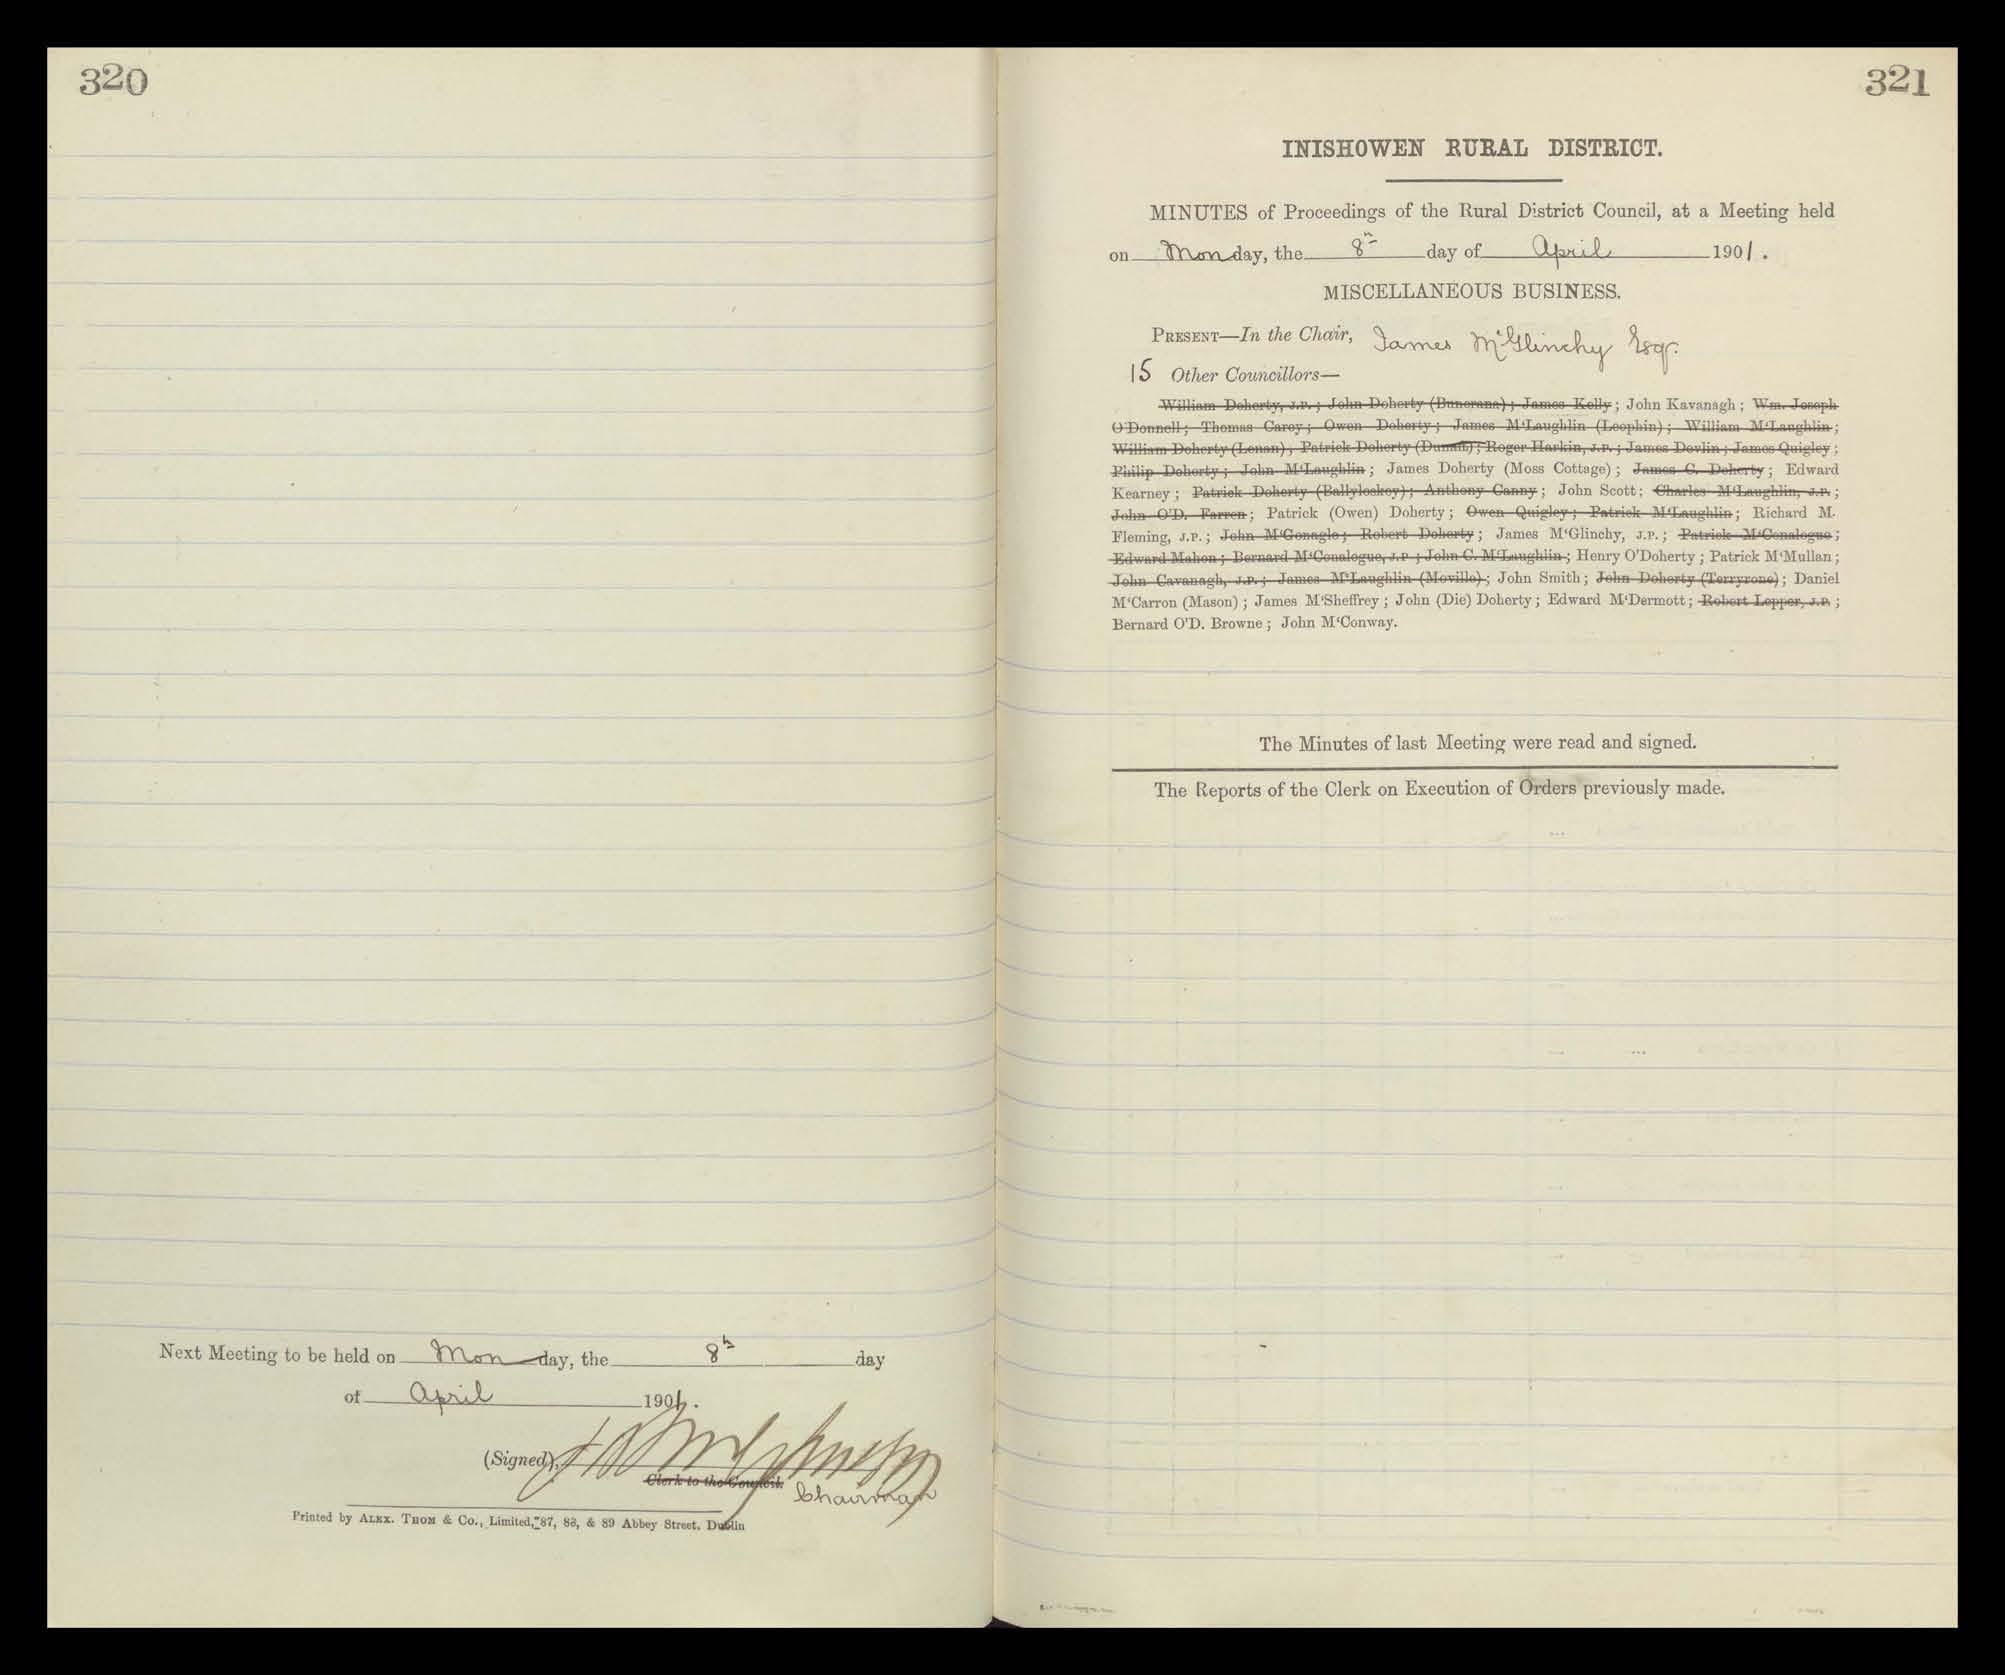 320
Next Meeting to be held on Monday, the 8th day
of April 1901.
(Signed),
Clerk to the Council.
Chairman
Printed by ALEX. THOM & Co., Limited, 87, 88, & 89 Abbey Street, Dublin
321
INISHOWEN RURAL DISTRICT.
MINUTES of Proceedings of the Rural District Council, at a Meeting held
on Monday, the 8th day of April 1901.
MISCELLANEOUS BUSINESS.
PRESENT—In the Chair, James McGlinchy Esqr.
15 Other Councillors—
William Doherty, J.P.; John Doherty (Buncrana); James Kelly; John Kavanagh; Wm. Joseph
O'Donnell; Thomas Carey; Owen Doherty; James M'Laughlin (Leophin); William M'Laughlin;
William Doherty (Lenan); Patrick Doherty (Dunaff); Roger Harkin, J.P.; James Devlin; James Quigley;
Philip Doherty; John M'Laughlin; James Doherty (Moss Cottage); James C. Doherty; Edward
Kearney; Patrick Doherty (Ballyloskey); Anthony Canny; John Scott; Charles M'Laughlin, J.P.;
John O'D. Farren; Patrick (Owen) Doherty; Owen Quigley; Patrick M'Laughlin; Richard M.
Fleming, J.P.; John M'Gonagle; Robert Doherty; James M'Glinchy, J.P.; Patrick M'Conalogue;
Edward Mahon; Bernard M'Conalogue, J.P.; John C. M'Laughlin; Henry O'Doherty; Patrick M'Mullan;
John Cavanagh, J.P.; James M'Laughlin (Moville); John Smith; John Doherty (Terryrone); Daniel
M'Carron (Mason); James M'Sheffrey; John (Die) Doherty; Edward M'Dermott; Robert Lepper, J.P.;
Bernard O'D. Browne; John M'Conway.
The Minutes of last Meeting were read and signed.
The Reports of the Clerk on Execution of Orders previously made.